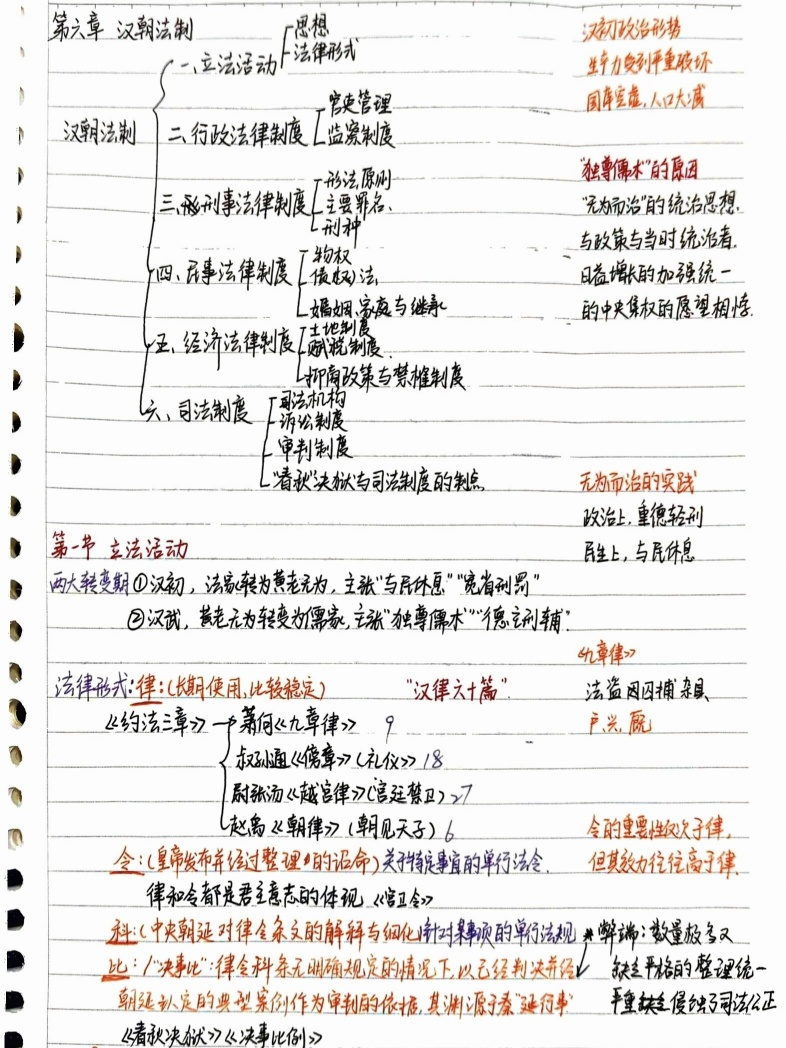 第六章 汉朝法制
汉朝法制
一、立法活动
思想
法律形式
二、行政法律制度
官吏管理
监察制度
三、刑事法律制度
刑法原则
主要罪名、
刑种
四、民事法律制度
物权
债权法、
婚姻、家庭与继承
五、经济法律制度
土地制度
赋税制度、
抑商政策与禁榷制度
六、司法制度
司法机构
诉讼制度
审判制度
"春秋"决狱与司法制度的制点
汉初政治形势
生产力受到严重破坏
国库空虚，人口大减
"独尊儒术"的原因
"无为而治"的统治思想、
与政策与当时统治者、
日益增长的加强统一
的中央集权的愿望相悖.
无为而治的实践
政治上，重德轻刑
民生上，与民休息
第一节 立法活动
两大转变期①汉初，法家转为黄老无为，主张"与民休息""宽省刑罚"
②汉武，黄老无为转变为儒家，主张"独尊儒术""德主刑辅"
法律形式：律：(长期使用，比较稳定) "汉律六十篇"
《约法三章》→萧何《九章律》 9
叔孙通《傍章》(礼仪) 18
尉张汤《越宫律》(宫廷禁卫) 27
赵禹《朝律》(朝见天子) 6
《九章律》
法盗网囚捕杂具
户、兴、厩
令：(皇帝发布并经过整理的诏命)关于特定事宜的单行法令.
律和令都是君主意志的体现 《宫卫令》
令的重要性仅次于律，
但其效力往往高于律.
科：(中央朝廷对律令条文的解释与细化)针对某事项的单行法规
比："决事比"：律令科条无明确规定的情况下，以已经判决并经
朝廷认定的典型案例作为审判的依据，其渊源于秦"廷行事"
《春秋决狱》《决事比例》
*弊端：数量极多又
缺乏严格的整理统一
严重侵蚀了司法公正